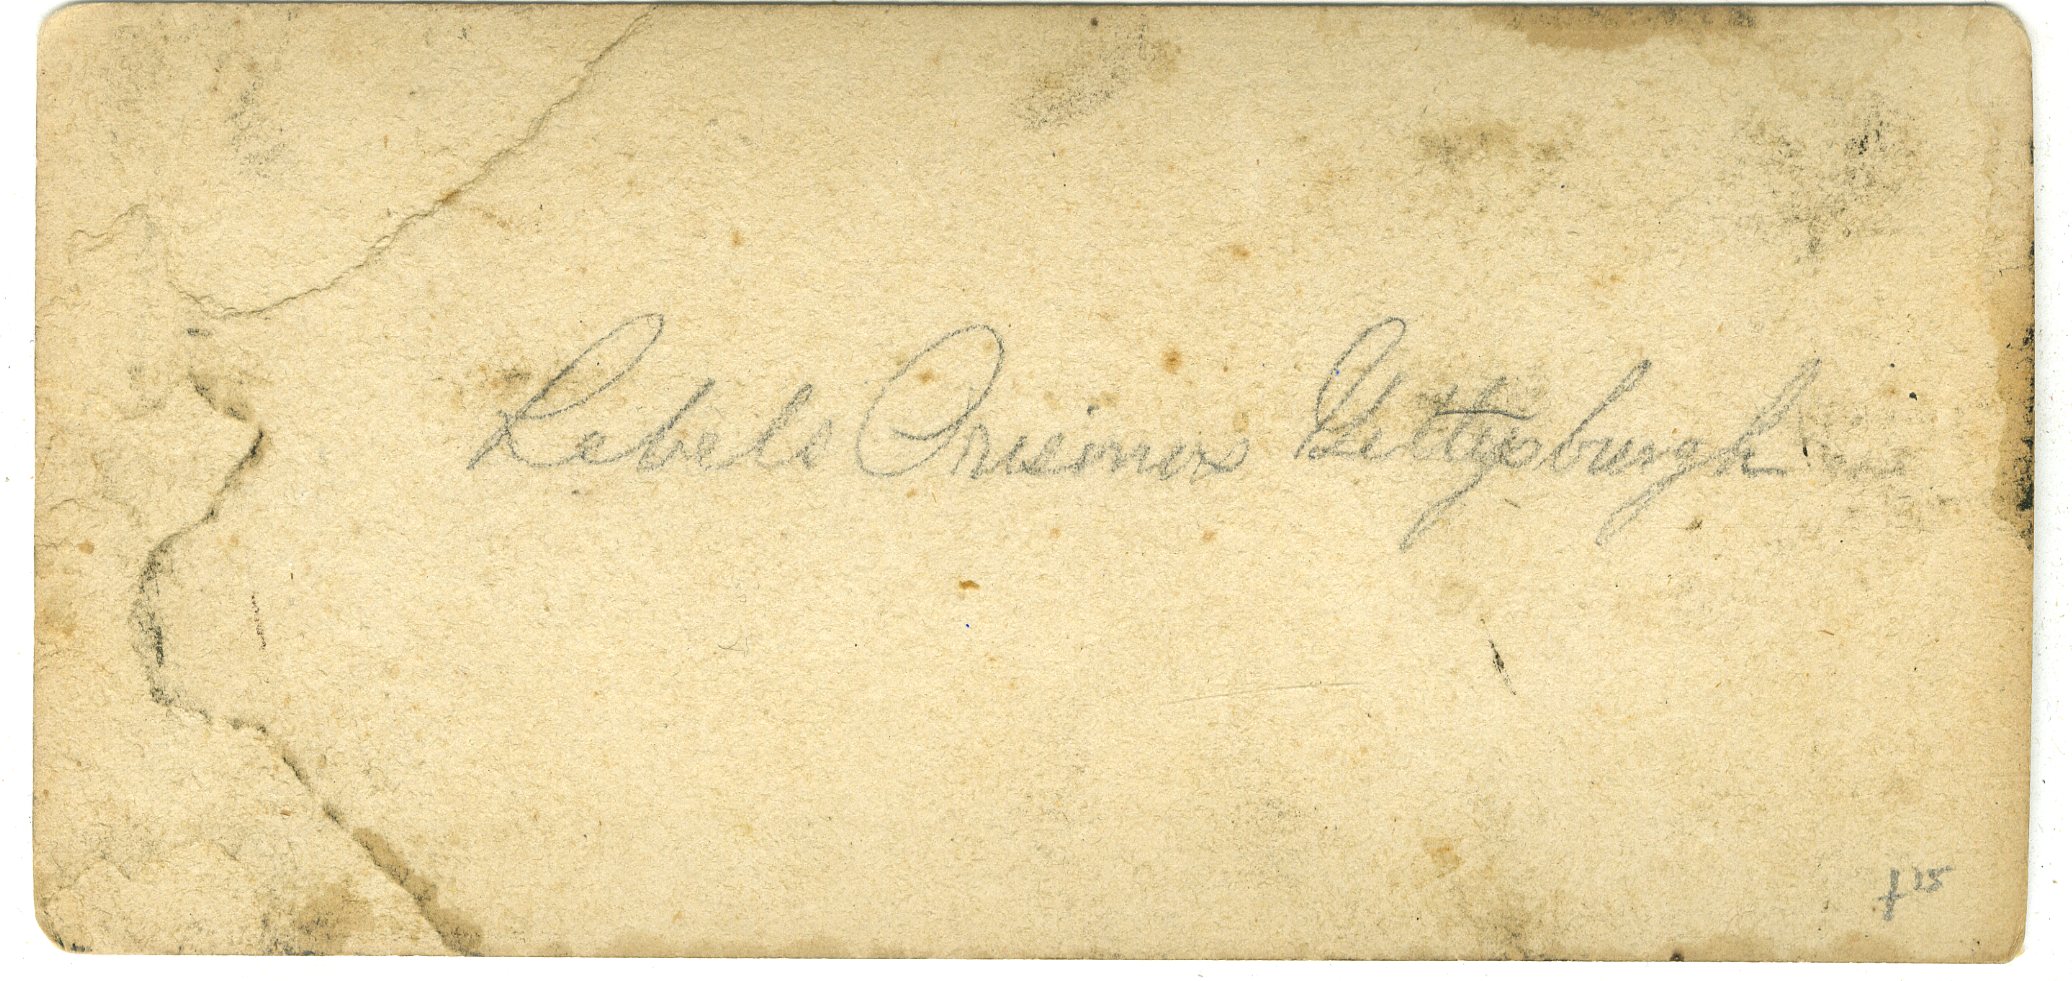 Rebels Prisoners Gettysburgh